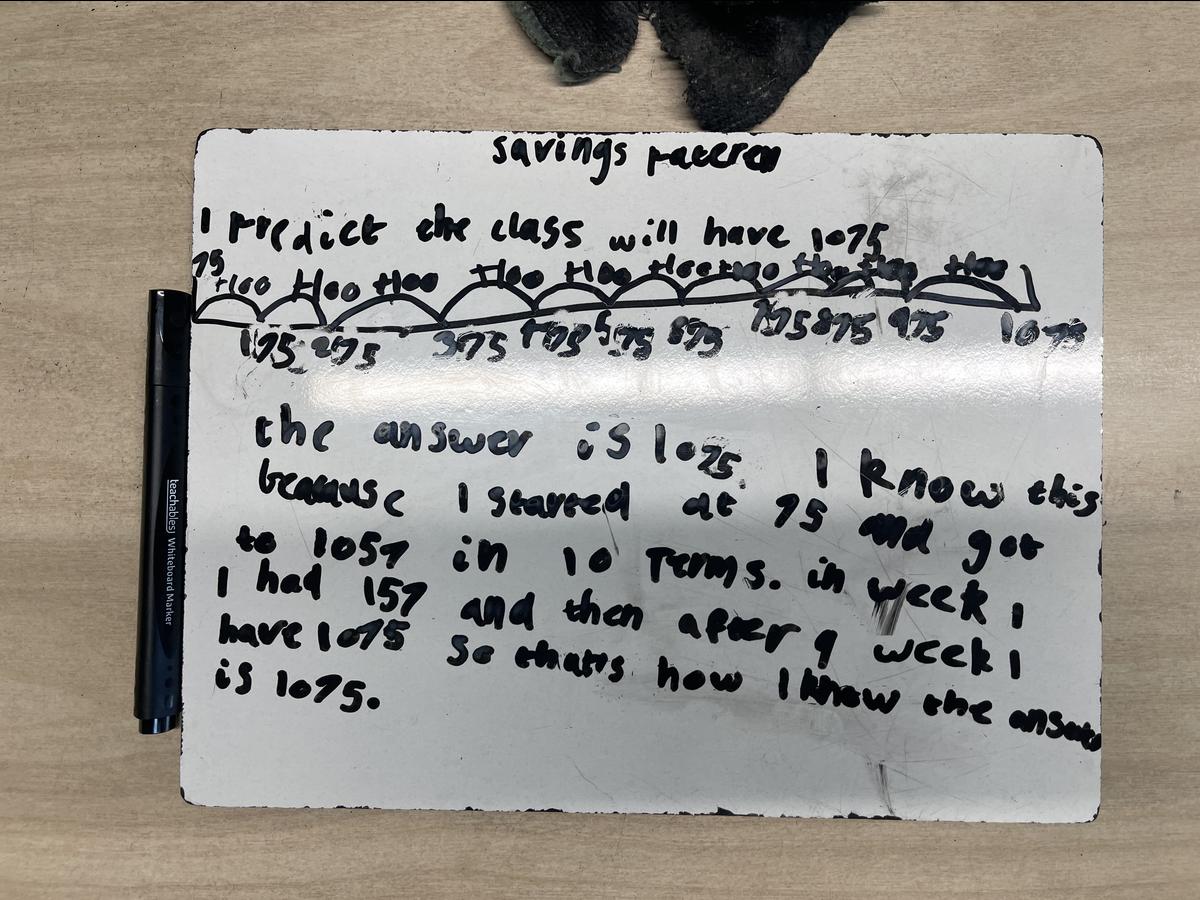 savings pateren
I predict the class will have 1075
75 +100 +100 +100 +100 +100 +100 +100 +100 +100 +100
175 275 375 475 575 675 775 875 975 1075
the answer is 1075 I know this
because I started at 75 and got
to 1057 in 10 Terms. in week 1
I had 157 and then after 9 week I
have 1075 so thats how I know the answer
is 1075.
teachables Whiteboard Marker